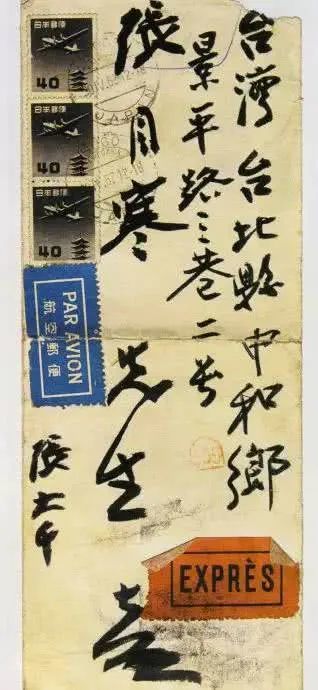 台灣台北縣中和鄉
景平路三巷二号
張目寒先生
張大千
日本郵便
40
日本郵便
40
日本郵便
40
PAR AVION
航空郵便
EXPRÈS
JAPAN